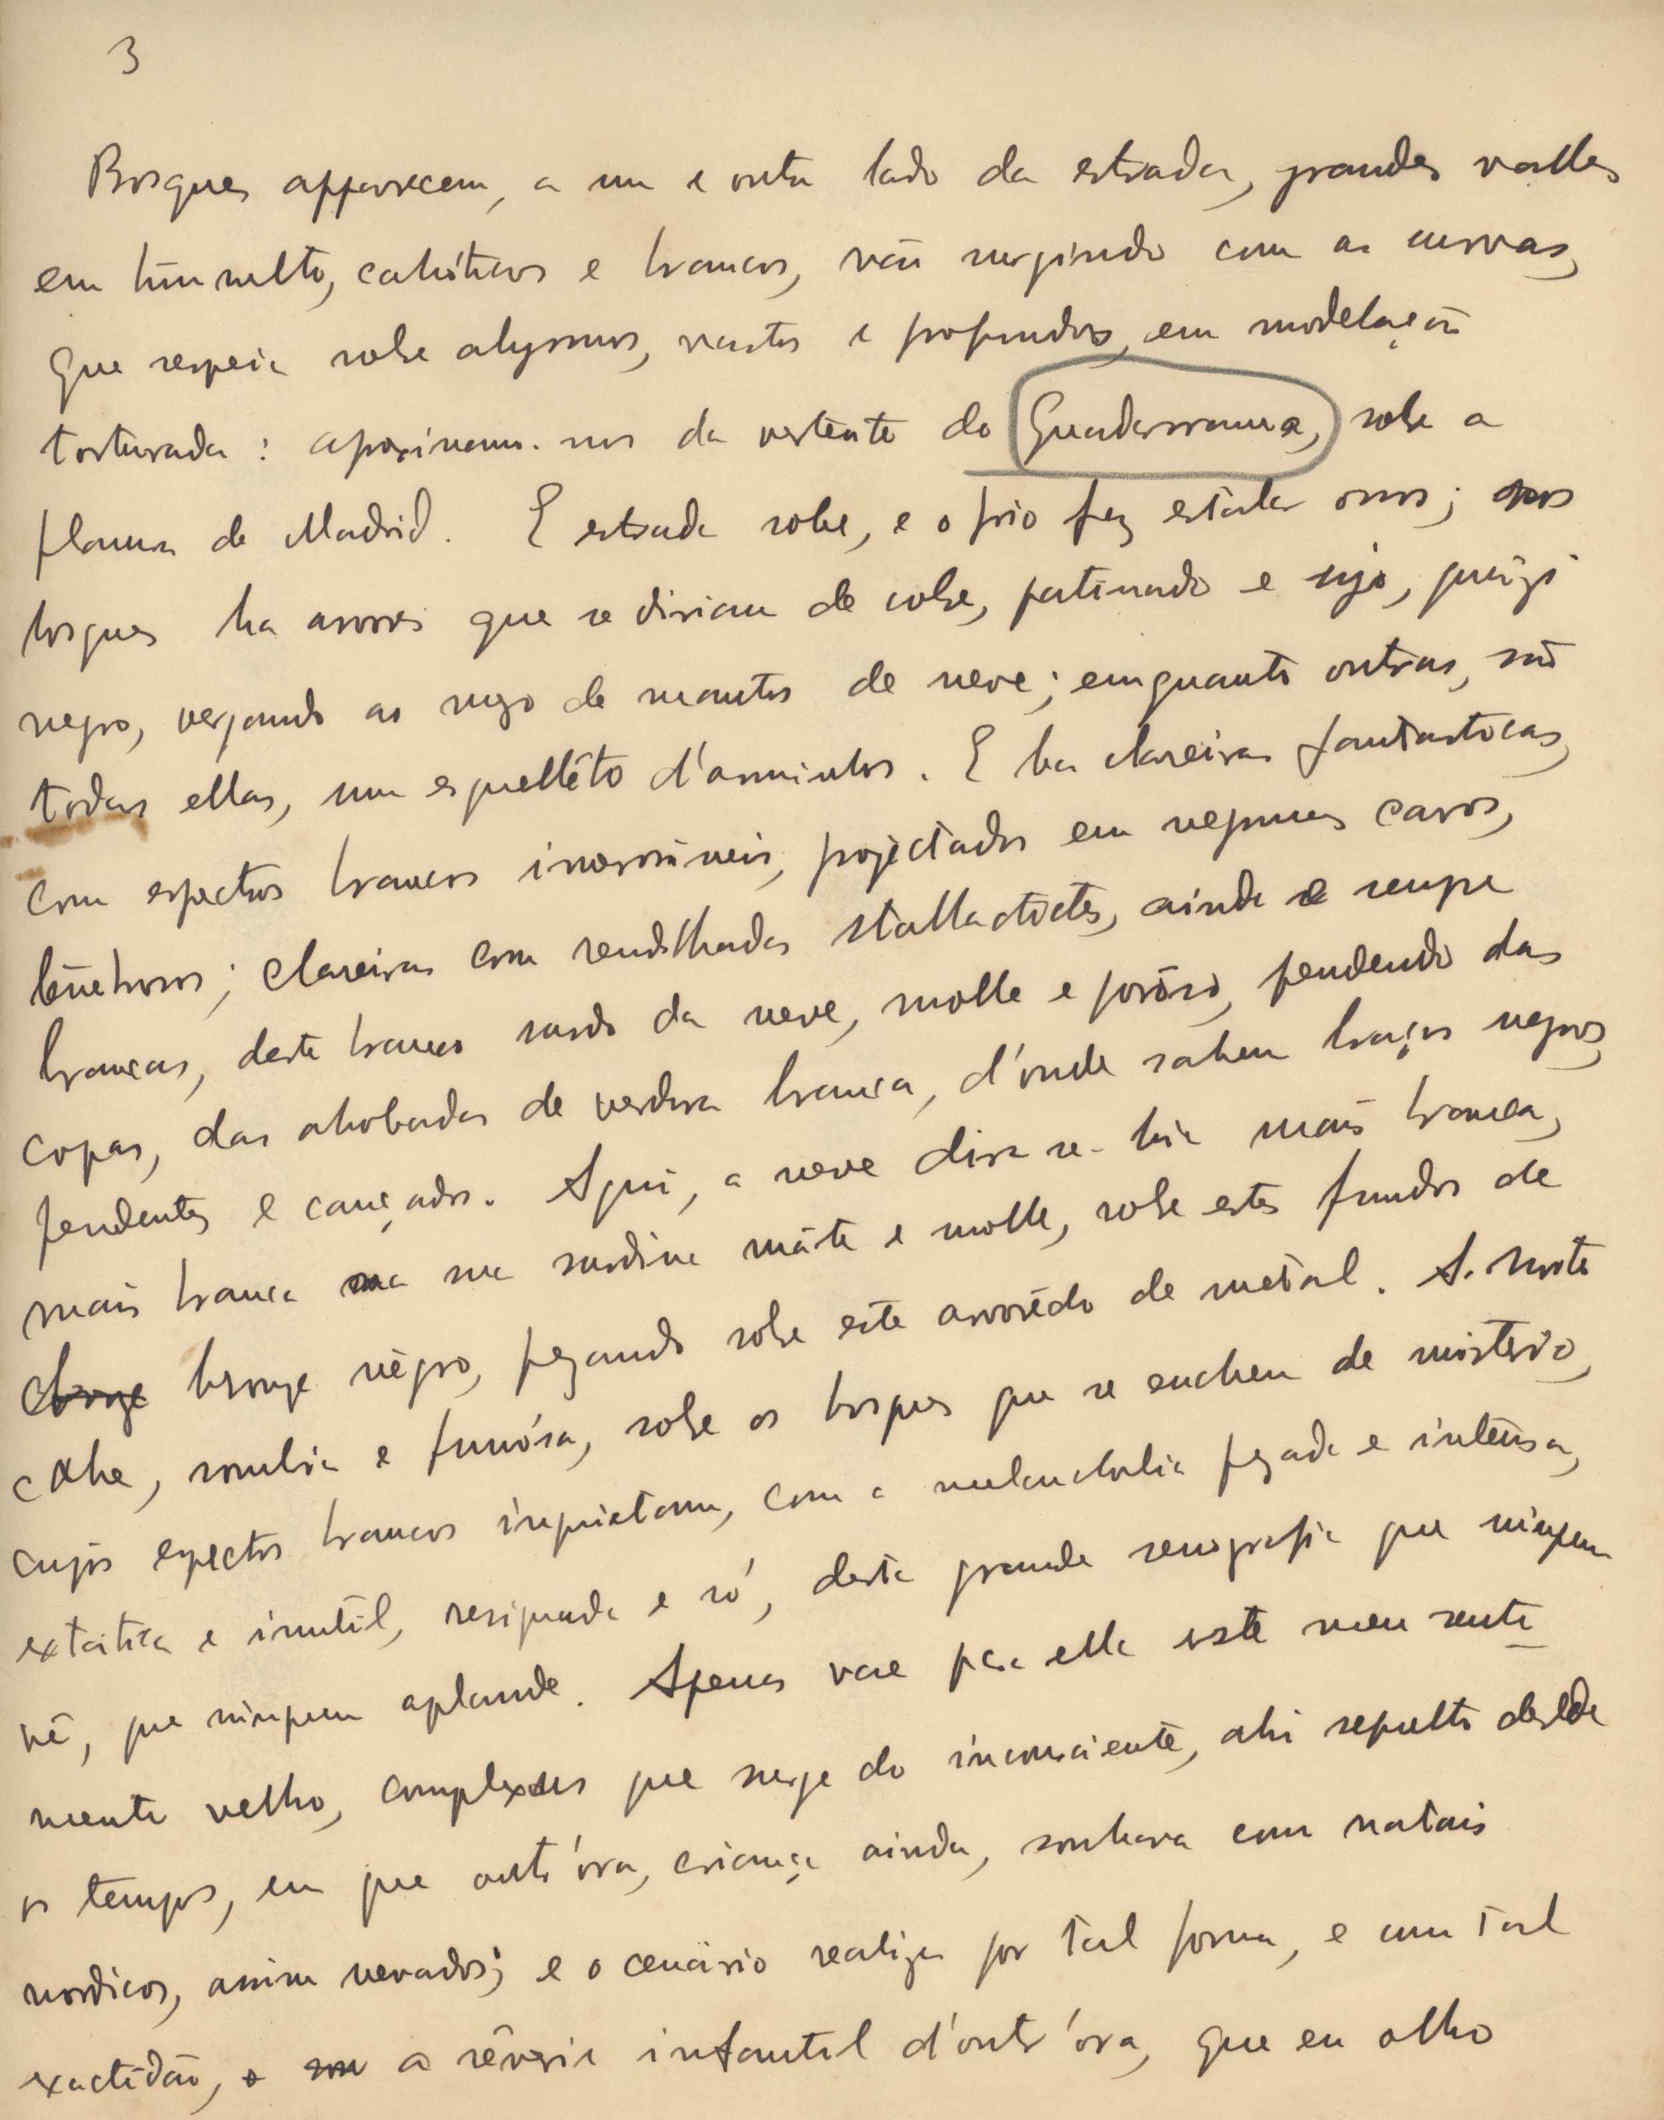 3
Bosques apparecem, a um e outro lado da estrada, grandes valles
em túmulto, cahóticos e brancos, vão surgindo com as curvas,
que serpeia sobre abysmos, vastos e profundos, em modelação
torturada: aproximamo-nos da vertente do Guadarrama, sobre a
planura de Madrid. E estrada sobe, e o frio fez estalar ossos; nos
bosques ha arvores que se diriam de cobre, patinado e sujo, quázi
negro, vergando ao pezo de mantos de neve; emquanto outras, são
todas ellas, um esquelléto d'arminhos. E ha clareiras fantasticas,
com espectros brancos inverosimeis, projectados em negrumes cavos,
tênebrosos; clareiras com rendilhadas stallactites, ainda e sempre
brancas, deste branco surdo da neve, molle e porôso, pendendo das
copas, das abobadas de verdura branca, d'onde sahem braços negros,
pendentes e cançados. Aqui, a neve dir-se-hia mais branca,
mais branca na sua surdina máte e molle, sobre estes fundos de
bronze négro, pezando sobre este arvorêdo de metal. A. Noite
cahe, sombria e fumósa, sobre os bosques que se enchem de misterio,
cujos espectros brancos inquietam, com a melancholia pezada e intensa,
extatica e inutil, resignada e só, desta grande senografia que ninguem
vê, que ninguem aplaude. Apenas vae para ella este meu senti
mento velho, complexo que surge do inconsciente, ahi sepulto desde
os tempos, em que outr'ora, criança ainda, sonhava com natais
nordicos, assim nevados; e o cenário realiza por tal forma, e com tal
exactidão, a rêverie infantil d'outr'ora, que eu olho